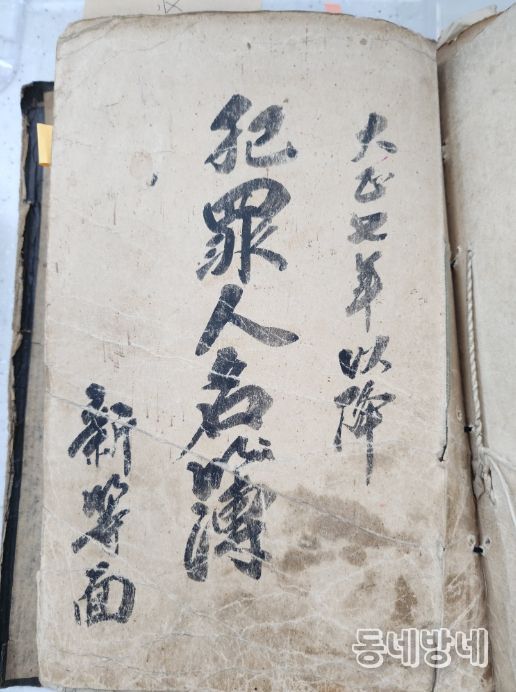 大正七年以降
犯罪人名簿
新等面
동네방네